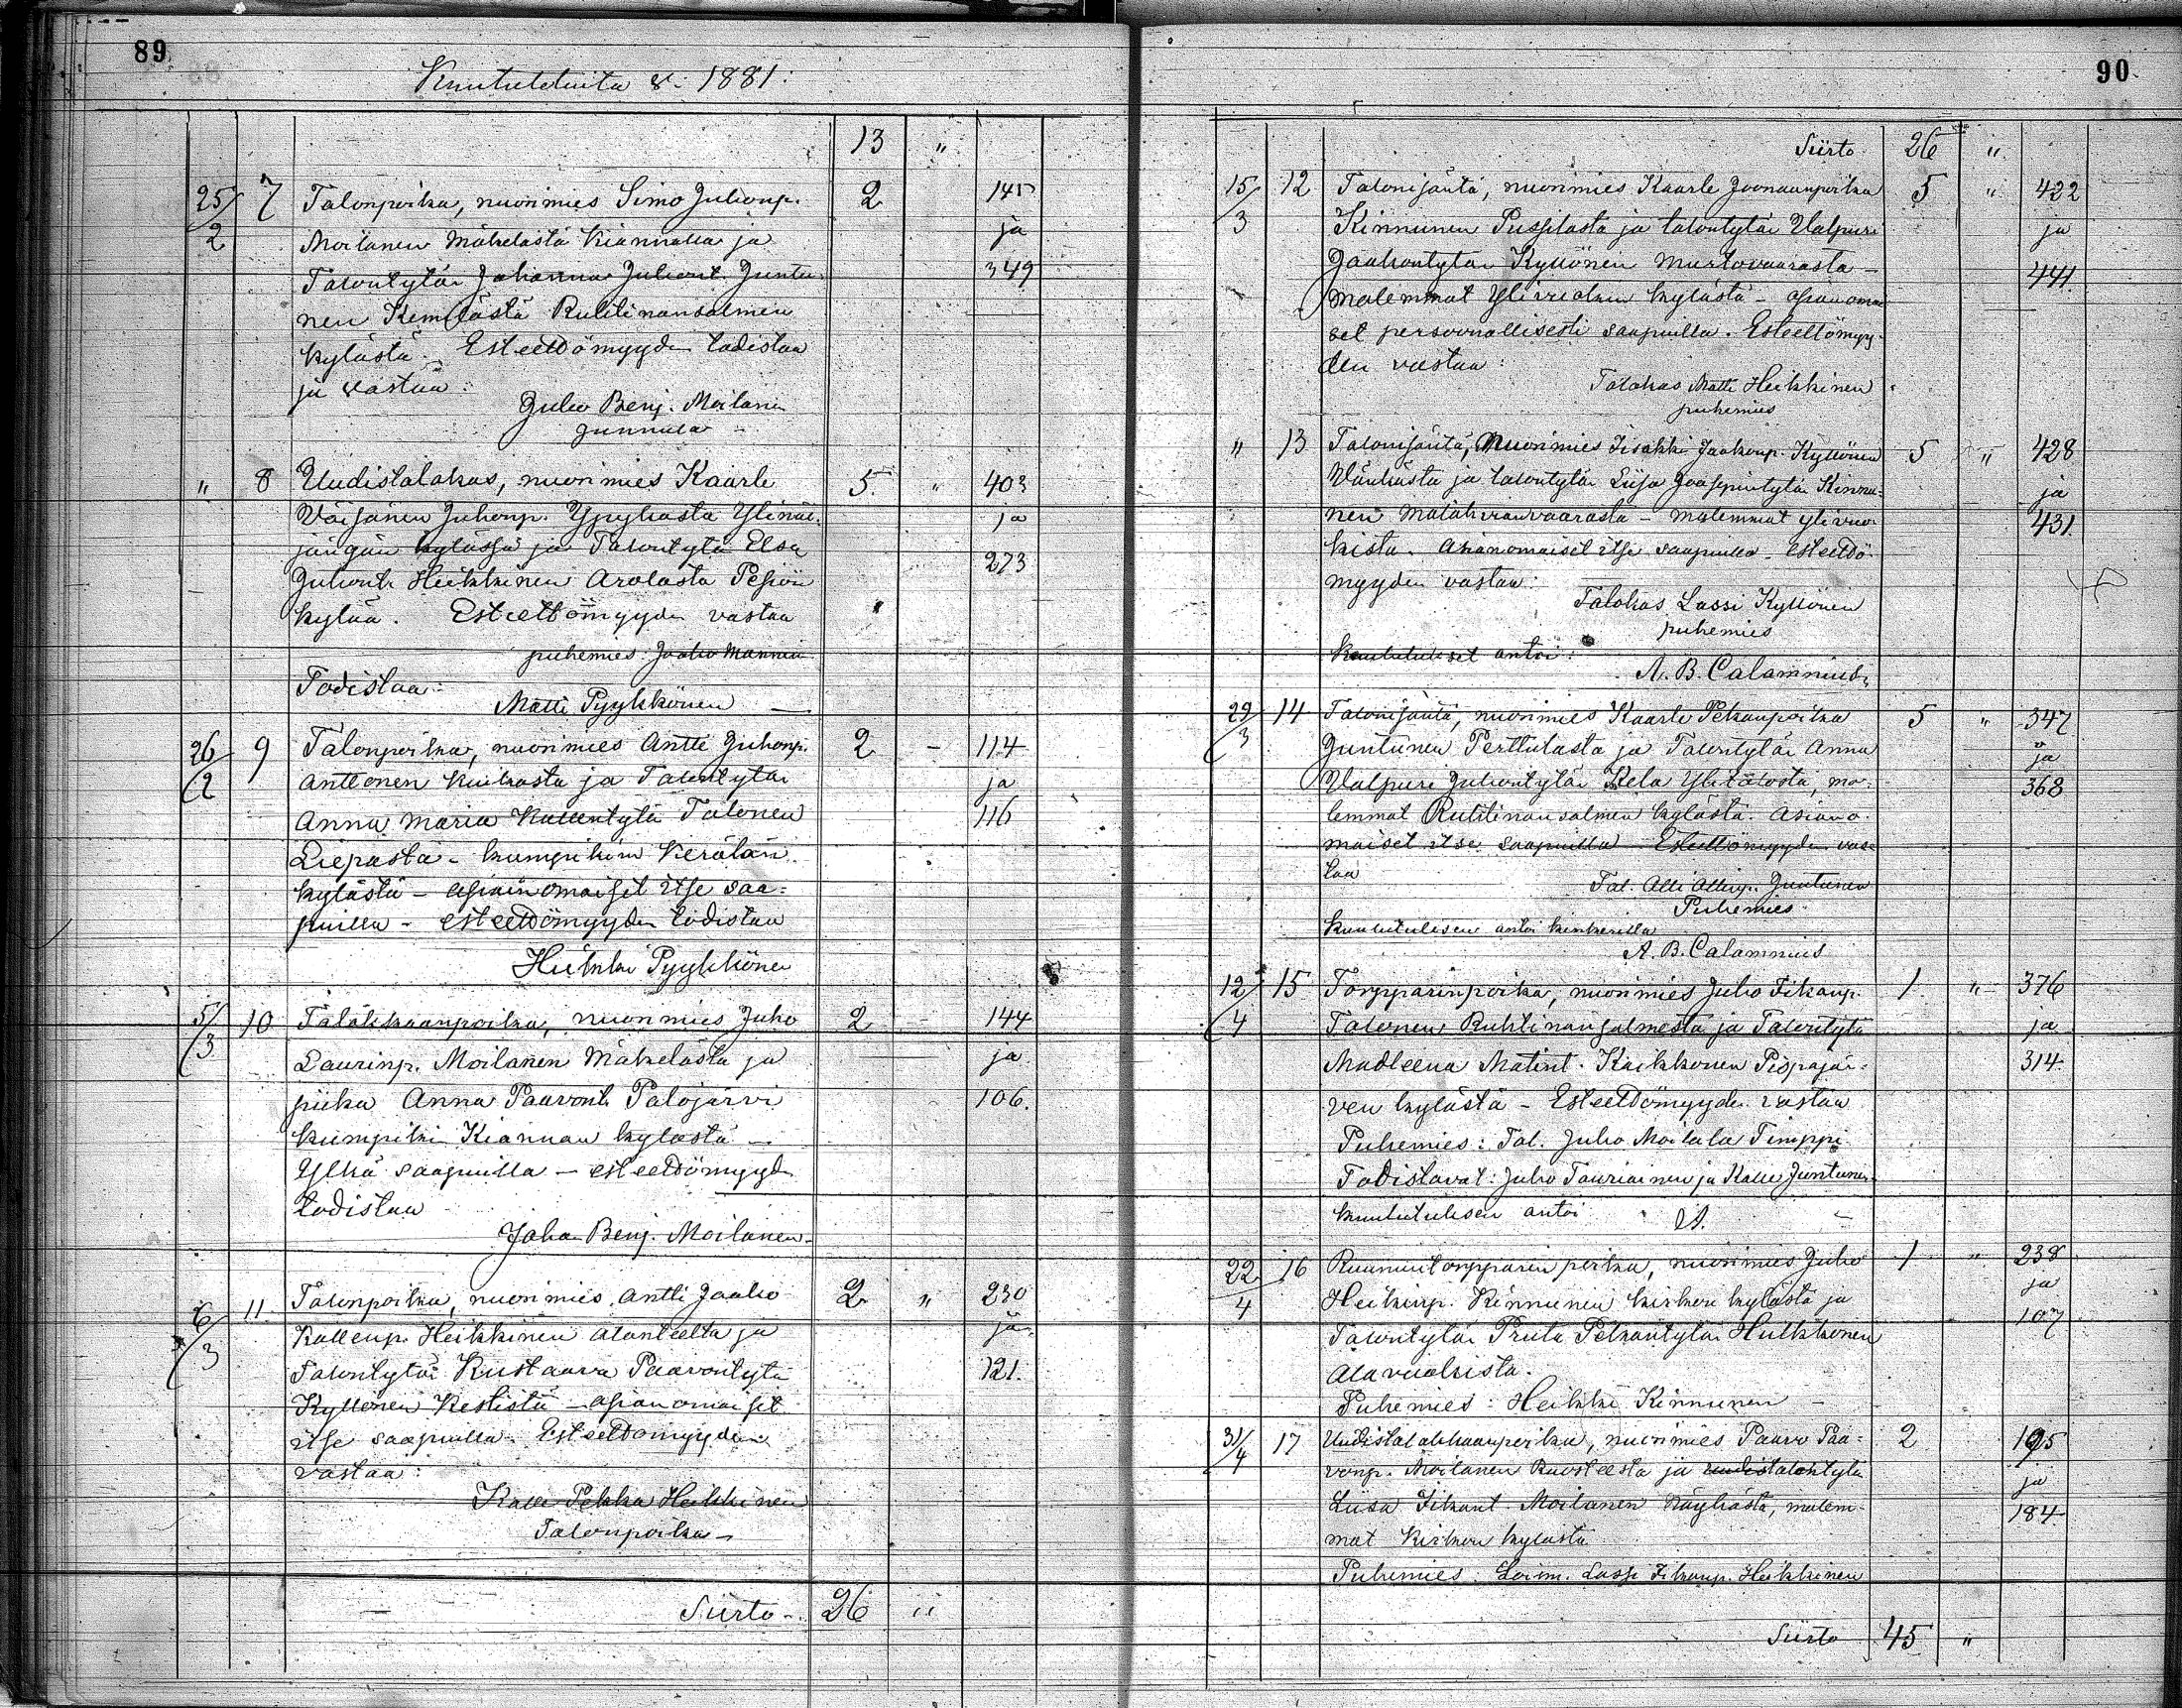 89
Kuulutettuita v: 1881:
13 "
25/2 7 Talonpoika, nuorimies Simo Juhonp. 2 145
Moilanen Mäkelästä Kiannalla ja ja
Talontytär Johanna Juhont. Juntu- 349
nen Kemilästä Ruhtinansalmen
kylästä. Esteettömyyden todistaa
ja vastaa:
Juho Benj. Moilanen
" 8 Uudistalokas, nuorimies Kaarle 5 " 403
Väisänen Juhonp. Ypykästä Ylinäl- ja
jängän kylässä ja Talontytä Elsa 273
Juhont. Heikkinen Arolasta Pesiön
kylää. Esteettömyyden vastaa
puhemies Jaako Mannin
Todistaa:
Matti Pyykkönen
26/2 9 Talonpoika, nuorimies Antti Juhonp. 2 - 114
Anttonen Kuikasta ja Talontytär ja
Anna Maria Kallentytä Talonen 116
Liepästä - kumpikin Kerälän
kylästä - asianomaiset itse saa-
puilla - esteettömyyden todistaa
Heikki Pyykkönen
5/3 10 Talokkaanpoika, nuorimies Juho 2 144
Laurinp. Moilanen Mäkelästä ja ja
piika Anna Paavont. Palojärvi 106.
kumpiki Kiannan kylästä -
Ylkä saapuilla - esteettömyyd
todistaa
Johan Benj. Moilanen
6/3 11 Talonpoika, nuorimies Antti Jaako 2 " 230
Kallenp. Heikkinen Alanteelta ja ja
Talontytär Kustaava Paavontytä 121.
Kyllönen Kestistä - asianomaiset
itse saapuilla. Esteettömyyden
vastaa:
Kalle Pekka Heikkinen
Talonpoika -
Siirto - 26 "
90
Siirto 26 "
15/3 12 Talonisäntä, nuorimies Kaarle Joonaanpoika 5 " 422
Kinnunen Pussilasta ja talontytär Valpuri ja
Jaakontytär Kyllönen Murtovaarasta - 441
molemmat Ylivuokin kylästä - asianomai
set persoonallisesti saapuilla. Esteettömyy-
den vastaa:
Talokas Matti Heikkinen
puhemies
" 13 Talonisäntä, Nuorimies Iisakki Jaakonp. Kyllönen 5 " 428
ja talontytär Liisa Jaaspintytär Kinnu- ja
nen - molemmat ylivuo- 431
kista. Asianomaiset itse saapuilla - esteettö-
myyden vastaa:
Talokas Lassi Kyllönen
puhemies
kuulutukset antoi:
A. B. Calamnius
29/3 14 Talonisäntä, nuorimies Kaarle Pekanpoika 5 " 347
Juntunen Perttulasta ja Talontytär Anna ja
Valpuri Juhontytär Kela Ylitalosta, mo- 368
lemmat Ruhtinansalmen kylästä. Asiano-
maiset itse saapuilla Esteettömyyden vas-
taa
Tal. Olli Ollinp. Juntunen
Puhemies
kuulutuksen antoi kinkerillä
A. B. Calamnius
12/4 15 Torpparinpoika, nuorimies Juho Iikanp. 1 " 376
Talonen Ruhtinansalmesta ja Talontytä ja
Madleena Matint. Kaikkonen Pispajär- 314
ven kylästä - Esteettömyyden vastaa
Puhemies: Tal. Juho Moilala Timppi
Todistavat: Juho Tauriainen ja Kalle Juntunen
kuulutuksen antoi
22/4 16 Ruununtorpparin poika, nuorimies Juho 1 " 238
Heikinp. Kinnunen kirkon kylästä ja ja
Talontytär Priita Pekantytär Hulkkonen 107
Alavuokista.
Puhemies: Heikki Kinnunen -
31/4 17 Uudistalokkaanpoika, nuorimies Paavo Paa- 2 195
vonp. Moilanen Ruosteesta ja uudistalontytä ja
Luisa Iikant. Moilanen, molem- 184
mat kirkon kylästä
Puhemies: Lassi Iikanp. Heikkinen
Siirto 45 "